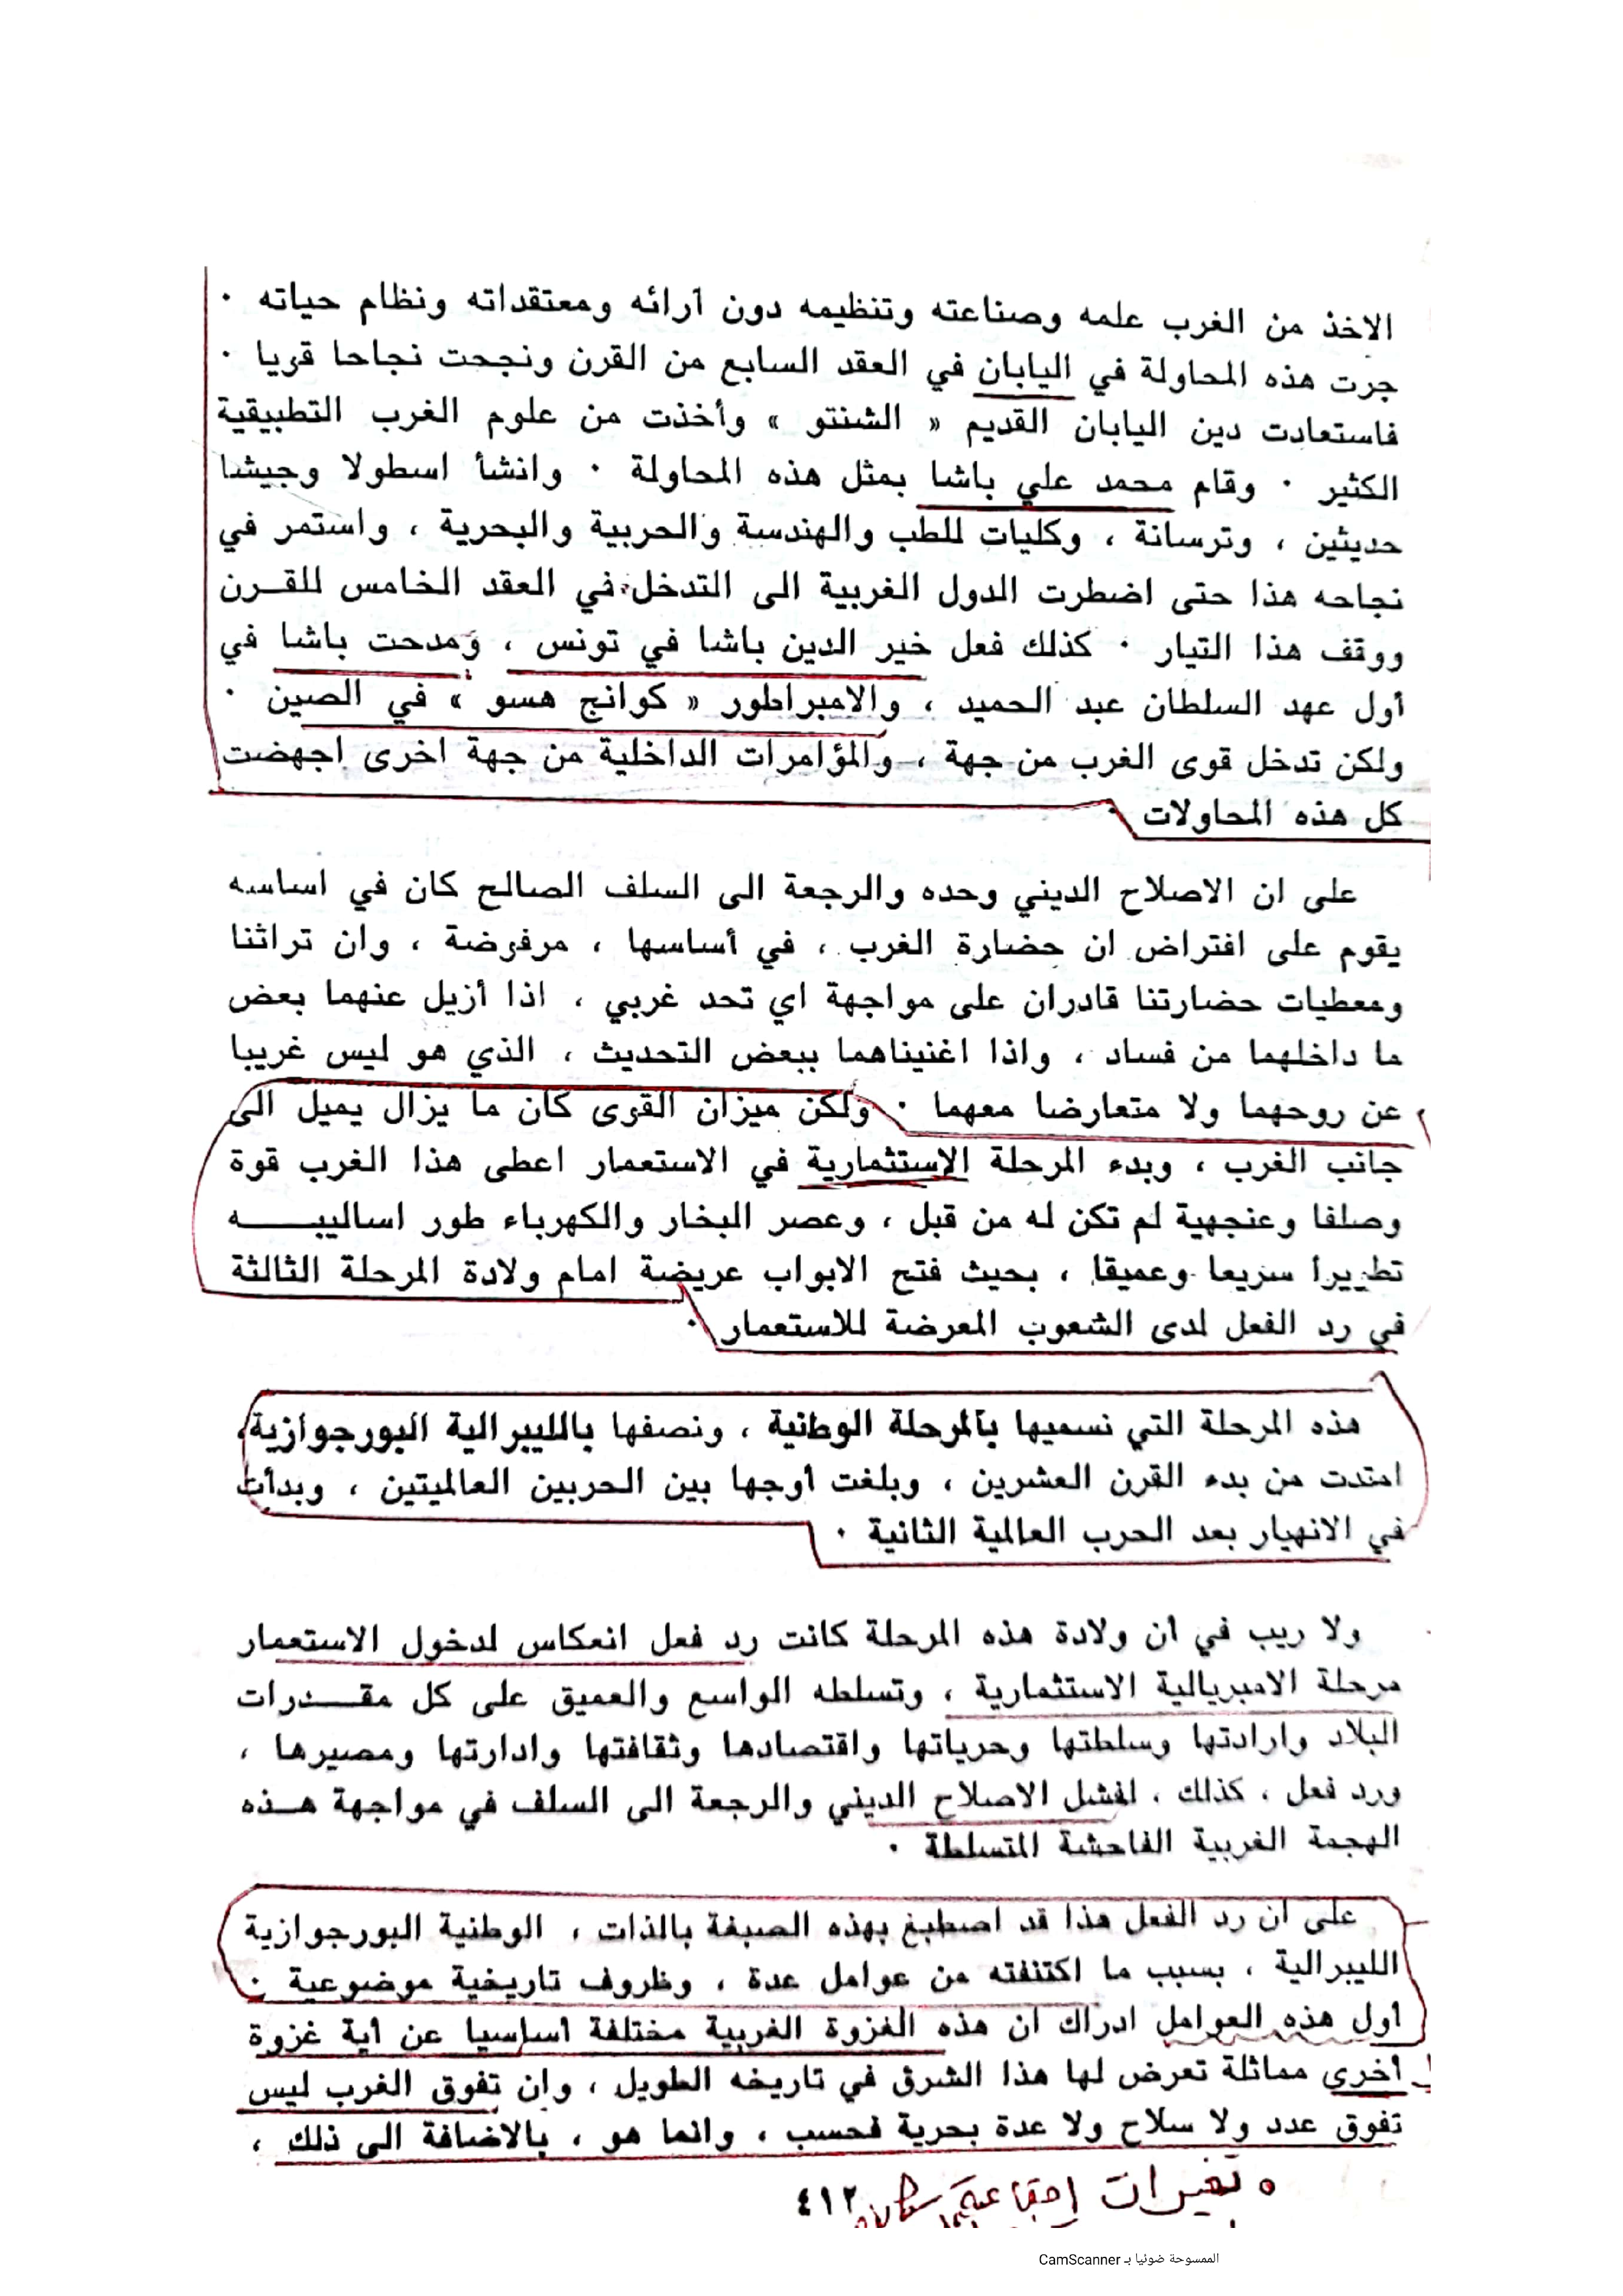 الاخذ من الغرب علمه وصناعته وتنظيمه دون آرائه ومعتقداته ونظام حياته ٠
جرت هذه المحاولة في اليابان في العقد السابع من القرن ونجحت نجاحا قويا ٠
فاستعادت دين اليابان القديم « الشنتو » وأخذت من علوم الغرب التطبيقية
الكثير ٠ وقام محمد علي باشا بمثل هذه المحاولة ٠ وانشأ اسطولا وجيشا
حديثين ، وترسانة ، وكليات للطب والهندسة والحربية والبحرية ، واستمر في
نجاحه هذا حتى اضطرت الدول الغربية الى التدخل في العقد الخامس للقـرن
ووقف هذا التيار ٠ كذلك فعل خير الدين باشا في تونس ، ومدحت باشا في
أول عهد السلطان عبد الحميد ، والامبراطور « كوانج هسو » في الصين ٠
ولكن تدخل قوى الغرب من جهة ، والمؤامرات الداخلية من جهة اخرى اجهضت
كل هذه المحاولات ٠
على ان الاصلاح الديني وحده والرجعة الى السلف الصالح كان في اساسه
يقوم على افتراض ان حضارة الغرب ، في أساسها ، مرفوضة ، وان تراثنا
ومعطيات حضارتنا قادران على مواجهة اي تحد غربي ، اذا أزيل عنهما بعض
ما داخلهما من فساد ، واذا اغنيناهما ببعض التحديث ، الذي هو ليس غريبا
عن روحهما ولا متعارضا معهما ٠ ولكن ميزان القوى كان ما يزال يميل الى
جانب الغرب ، وبدء المرحلة الاستثمارية في الاستعمار اعطى هذا الغرب قوة
وصلفا وعنجهية لم تكن له من قبل ، وعصر البخار والكهرباء طور اساليبـــه
تطويرا سريعا وعميقا ، بحيث فتح الابواب عريضة امام ولادة المرحلة الثالثة
في رد الفعل لدى الشعوب المعرضة للاستعمار ٠
هذه المرحلة التي نسميها بالمرحلة الوطنية ، ونصفها بالليبرالية البورجوازية،
امتدت من بدء القرن العشرين ، وبلغت أوجها بين الحربين العالميتين ، وبدأت
في الانهيار بعد الحرب العالمية الثانية ٠
ولا ريب في ان ولادة هذه المرحلة كانت رد فعل انعكاس لدخول الاستعمار
مرحلة الامبريالية الاستثمارية ، وتسلطه الواسع والعميق على كل مقـــدرات
البلاد وارادتها وسلطتها وحرياتها واقتصادها وثقافتها وادارتها ومصيرها ،
ورد فعل ، كذلك ، لفشل الاصلاح الديني والرجعة الى السلف في مواجهة هـــذه
الهجمة الغربية الفاحشة المتسلطة ٠
على ان رد الفعل هذا قد اصطبغ بهذه الصبغة بالذات ، الوطنية البورجوازية
الليبرالية ، بسبب ما اكتنفته من عوامل عدة ، وظروف تاريخية موضوعية ٠
أول هذه العوامل ادراك ان هذه الغزوة الغربية مختلفة اساسيا عن أية غزوة
أخرى مماثلة تعرض لها هذا الشرق في تاريخه الطويل ، وان تفوق الغرب ليس
تفوق عدد ولا سلاح ولا عدة بحرية فحسب ، وانما هو ، بالاضافة الى ذلك ،
تغيرات إجتماعية
٤١٢
الممسوحة ضوئيا بـ CamScanner